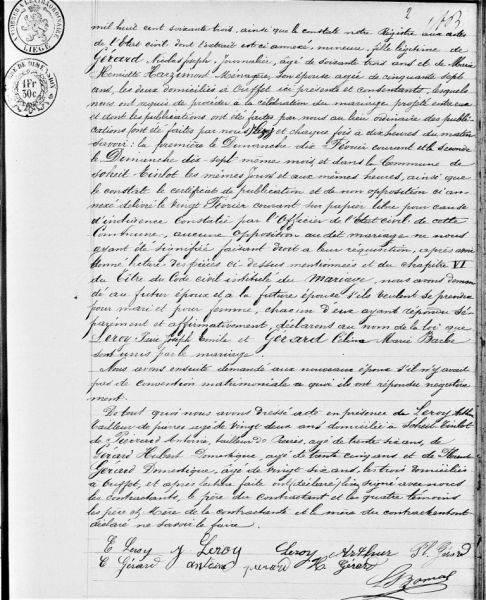 2
LIÈGE
1 Fr
30c
mil huit cent soixante trois, ainsi que le constate notre Registre aux actes
de l'Etat civil dont l'extrait est ci annexé, mineure, fille légitime de
Gérard Nicolas Joseph journalier, âgé de soixante trois ans et de Marie
Henriette Ménagère, son épouse agée de cinquante sept
ans, les deux domiciliés à ici présents et consentants, lesquels
nous ont requis de procéder à la célébration du mariage projeté entre eux
et dont les publications ont été faites par nous au lieu ordinaire des publi-
cations (ont été faites par nous) et chaques fois à dix heures du matin
savoir: la première le Dimanche dix Février courant et la seconde
le Dimanche dix-sept même mois, et dans la Commune de
les mêmes jours et aux mêmes heures, ainsi que
le constate le certificat de publication et de non opposition ci an-
nexé délivré le vingt Février courant sur papier libre pour cause
d'indigence Constatée par l'Officier de l'Etat civil de cette
Commune, aucune opposition au dit mariage ne nous
ayant été signifiée faisant droit à leur réquisition, après avoir
donné lecture des pièces ci-dessus mentionnées et du chapitre VI
du titre du Code civil intitulé du Mariage, nous avons deman-
dé au futur époux et à la future épouse s'ils veulent se prendre
pour mari et pour femme, chacun d'eux ayant répondu sé-
parément et affirmativement, déclarons au nom de la loi que
Leroy Joseph Emile et Gérard Céline Marie Barbe
sont unis par le mariage.
Nous avons ensuite demandé aux nouveaux époux s'il n'y avait
pas de convention matrimoniale à quoi ils ont répondu négative-
ment.
Do tout quoi nous avons dressé acte en présence de Leroy
tailleur de pierres agé de vingt deux ans domicilié à
de Antoine, tailleur de agé de trente six ans, de
Gérard Hubert Domestique, agé de trente cinq ans et de
Gérard Domestique, agé de vingt six ans, les trois domiciliés
à et après lecture faite ont signé avec nous
les contractants, le père du contractant et les quatre témoins
les père et Mère de la contractante et la mère du contractant ont
déclaré ne savoir le faire.
E Leroy J Leroy Leroy Arthur Gérard
C Gérard antoine H Gérard